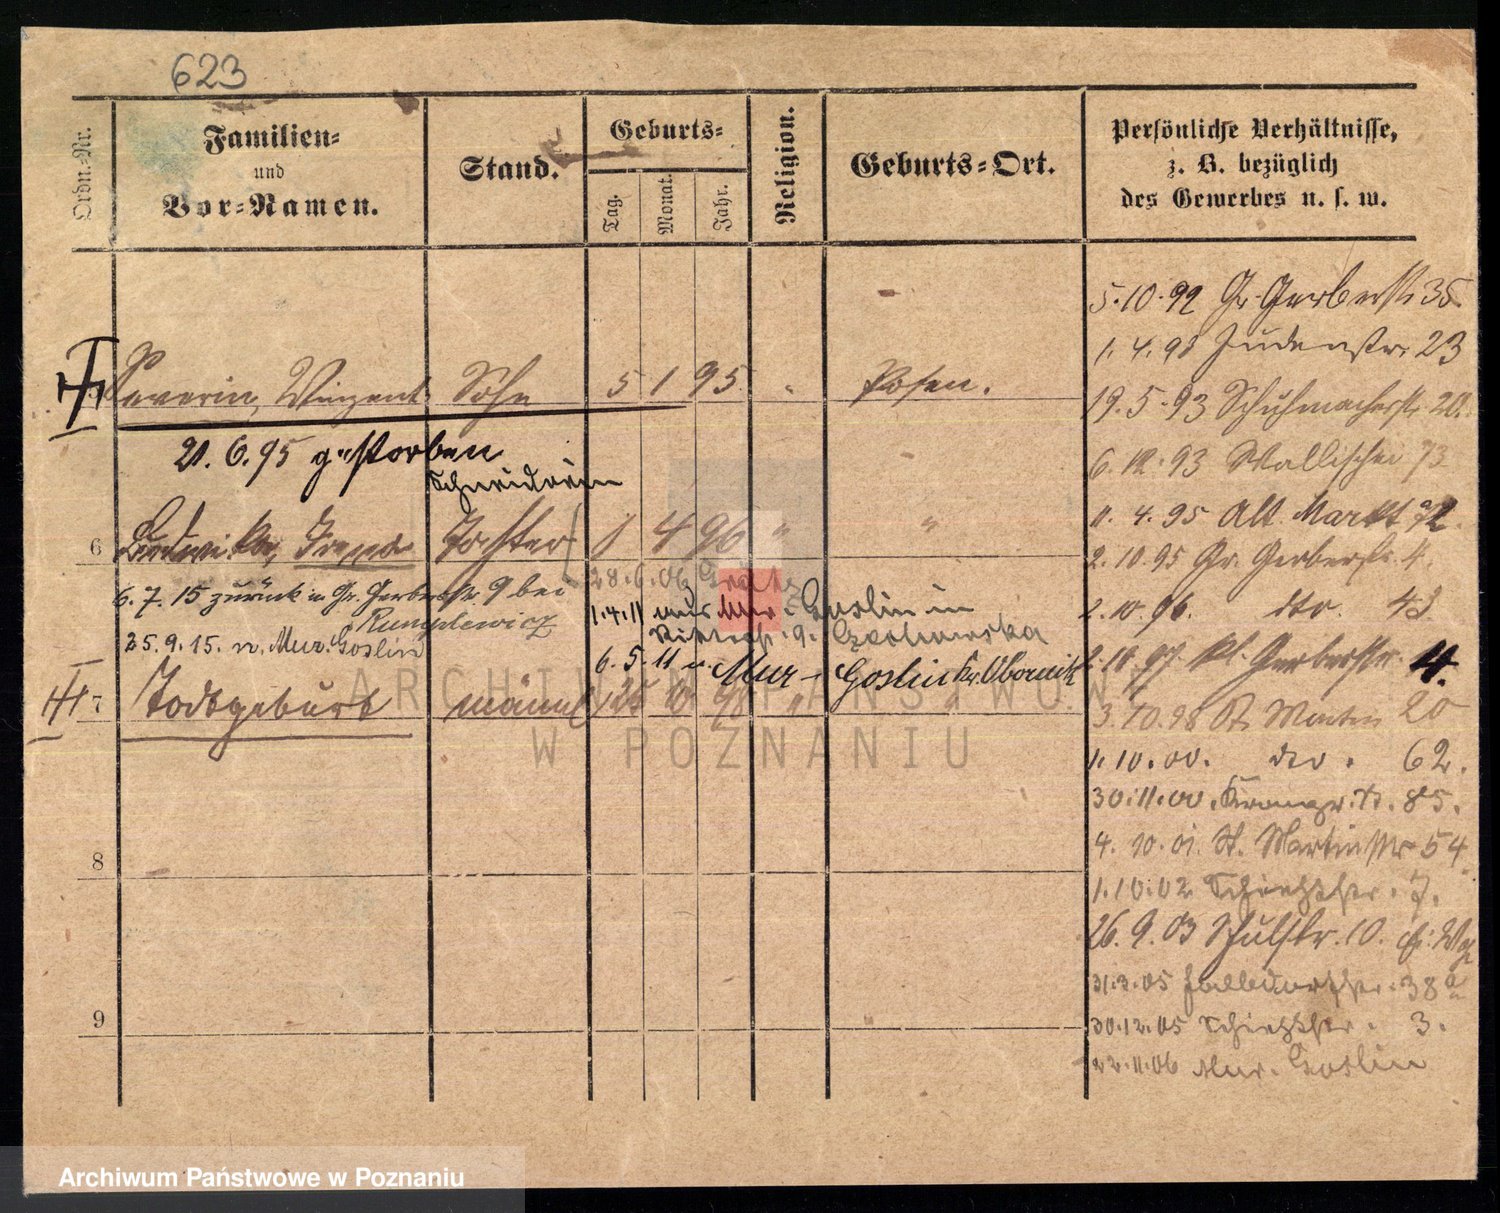 623
Ordn.-Nr.
Familien-
und
Vor-Namen.
Stand.
Geburts-
Tag.
Monat.
Jahr.
Religion.
Geburts-Ort.
Persönliche Verhältnisse,
z. B. bezüglich
des Gewerbes u. s. w.
Severin, Vinzent Sohn 5 1 95 " Posen.
21. 6. 95 gestorben
Schneiderin
6 Ludwika, Irena Tochter 8 96 " "
28.6.06 Grätz
6. 7. 15 zurück n Gr. Gerberstr 9 bei
Rumplewicz
1.4.11 aus Mur. Goslin in
9.
25. 9. 15. n. Mur. Goslin
6. 5. 11 n Mur- Goslin Kr. Obornik
7 Todtgeburt männl 98 " "
8
9
5.10.92 Gr. Gerberstr 35.
1. 4. 93 Judenstr. 23
19. 5. 93 Schuhmacherstr 20.
6. 12. 93 Wallischei 73
11. 4. 95 Alt. Markt 92.
2. 10. 95 Gr. Gerberstr. 4.
2. 10. 96. dto. 43.
2. 10. 97. Kl. Gerberstr. 4.
3. 10. 98 St. Martin 20
1. 10. 00. dto. 62.
30. 11. 00. 85.
4. 10. 01. St. Martinstr 54.
1. 10. 02 Schießstr. 7.
26. 9. 03 Schulstr. 10.
31. 3. 05 Halbdorfstr. 38
30. 12. 05 Schießstr. 3.
22. 11. 06 Mur. Goslin
ARCHIWUM PAŃSTWOWE
W POZNANIU
Archiwum Państwowe w Poznaniu